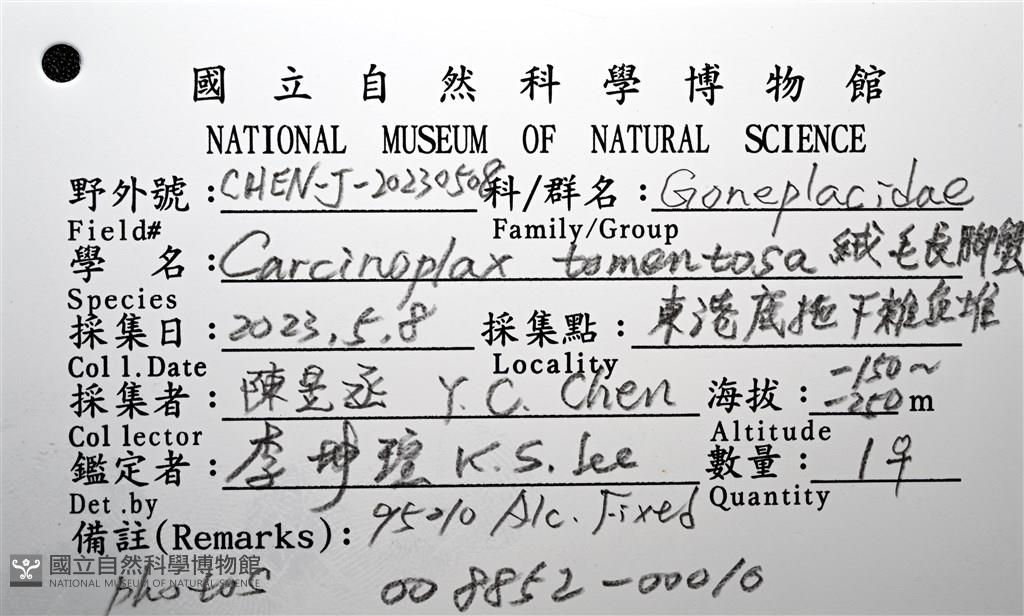 國立自然科學博物館
NATIONAL MUSEUM OF NATURAL SCIENCE
野外號：CHEN-J-20230508 科/群名：Goneplacidae
Field# Family/Group
學 名：Carcinoplax tomentosa 絨毛長腳蟹
Species
採集日：2023.5.8 採集點：東港底拖下雜魚堆
Coll.Date Locality
採集者：陳昱丞 Y.C. Chen 海拔：-150~-250m
Collector Altitude
鑑定者：李坤瑄 K.S. Lee 數量：1♀
Det.by Quantity
備註(Remarks)：95% Alc. Fixed
photos 008852-00010
國立自然科學博物館
NATIONAL MUSEUM OF NATURAL SCIENCE